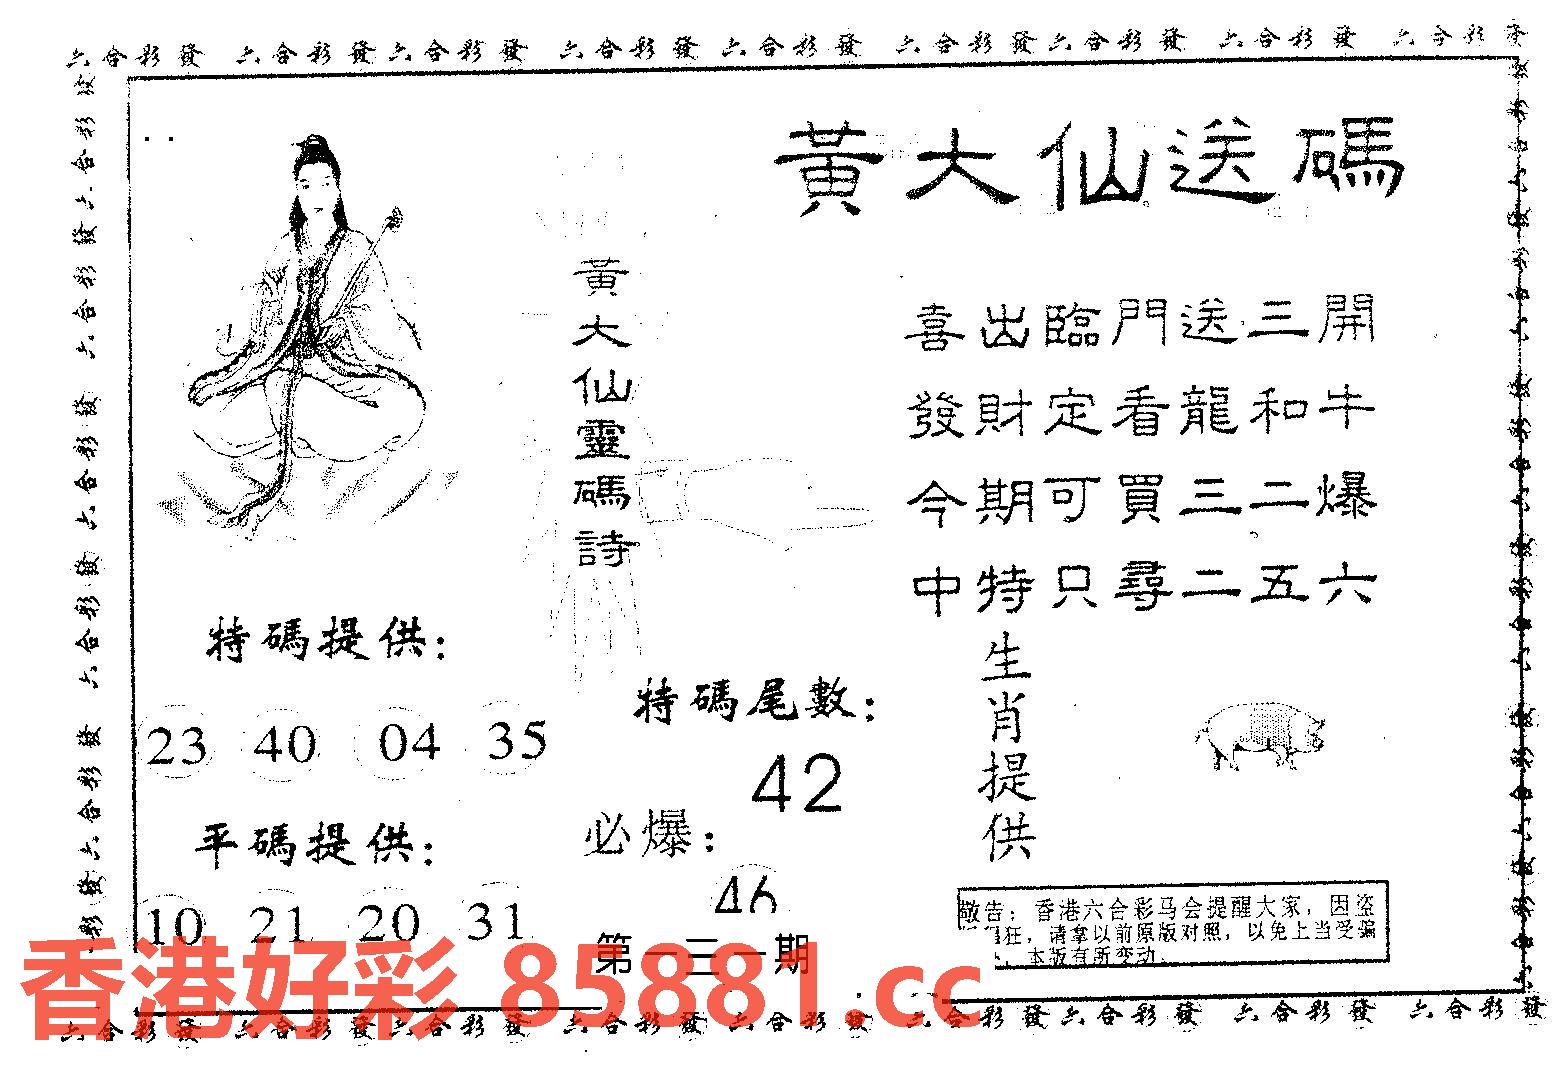 六合彩發 六合彩發 六合彩發 六合彩發 六合彩發 六合彩發 六合彩發 六合彩發 六合彩發
黃大仙送碼
黃大仙靈碼詩
喜出臨門送三開
發財定看龍和牛
今期可買三二爆
中特只尋二五六
特碼提供：
23 40 04 35
平碼提供：
10 21 20 31
特碼尾數：
42
必爆：
46
第一三一期
生肖提供
敬告：香港六合彩马会提醒大家，因盗
狂，请拿以前原版对照，以免上当受骗
，本版有所变动.
香港好彩 85881.cc
六合彩發 六合彩發 六合彩發 六合彩發 六合彩發 六合彩發 六合彩發 六合彩發 六合彩發